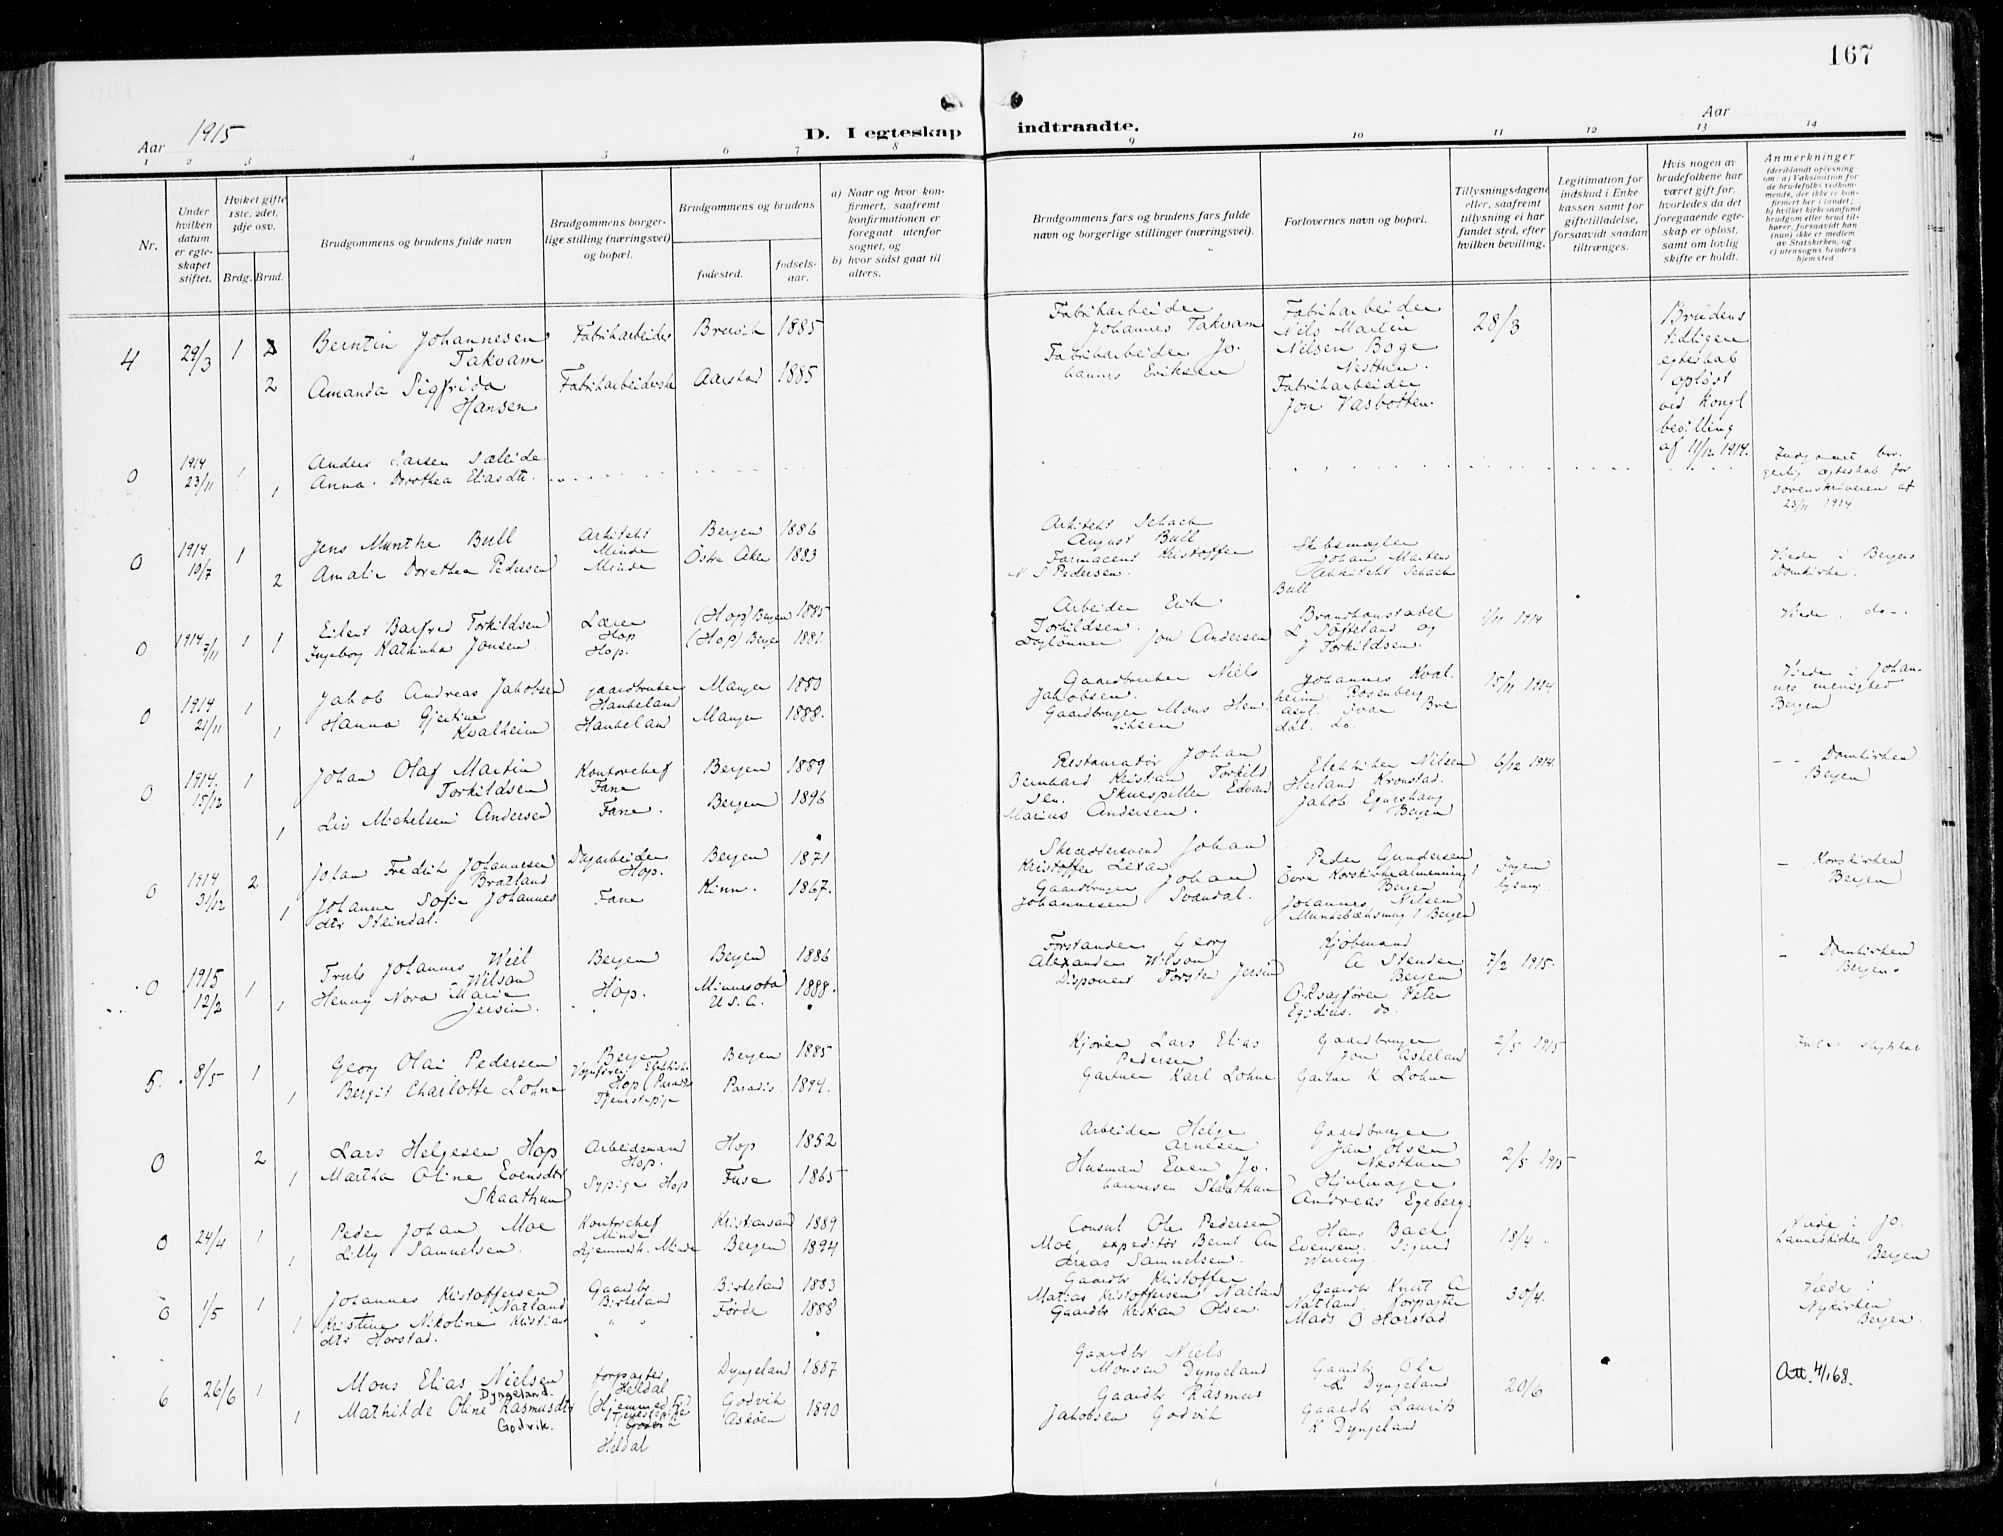 167
Aar 1915
D. I egteskap indtraadte.
Aar
1 2 3 4 5 6 7 8 9 10 11 12 13 14
Nr.
Under hvilken datum er egteskapet stiftet.
Hviket gifte 1ste, 2det, 3dje osv.
Brdg. Brud.
Brudgommens og brudens fulde navn
Brudgommens borgerlige stilling (næringsvei) og bopæl.
Brudgommens og brudens
fødested.
fødselsaar.
a) Naar og hvor konfirmert, saafremt konfirmationen er foregaat utenfor sognet, og
b) hvor sidst gaat til alters.
Brudgommens fars og brudens fars fulde navn og borgerlige stillinger (næringsvei).
Forlovernes navn og bopæl.
Tillysningsdagene eller, saafremt tillysning ei har fundet sted, efter hvilken bevilling.
Legitimation for indskud i Enkekassen samt for giftetilladelse, forsaavidt saadan tiltrænges.
Hvis nogen av brudefolkene har været gift før, hvorledes da det foregaaende egteskap er opløst, samt om lovlig skifte er holdt.
Anmerkninger
(deriblandt oplysning om: a) Vaksination for de brudefolks vedkommende, der ikke er konfirmert her i landet; b) hvilket kirkesamfund brudgom eller brud tilhører, forsaavidt han (hun) ikke er medlem av Statskirken, og c) utensogns bruders hjemsted
4 29/3 1 Berntin Johannesen Takvam Fabrikarbeider Bruvik 1885
Fabrikarbeider Johannes Takvam
Fabrikarbeider Nils Martin Nilsen Boge Nesttun.
28/3
Brudens tidligere egteskab opløst ved Kongl bevilling af 11/12 1914.
2 Amanda Sigfrida Hansen Fabrikarbeiderske Aarstad 1885
Fabrikarbeider Johannes Eriksen
Fabrikarbeider Jon Vasbotten.
0 1914 23/11 1 Anders Larsen Sæleide
1 Anna Dorothea Eliasdtr.
Indgaaet borgerlig ægteskab for sorenskriveren af 23/11 1914
0 1914 10/7 1 Jens Munthe Bull Arkitekt Minde Bergen 1886
2 Amalie Dorethea Pedersen Minde Østre Aker 1883
Arkitekt Schach August Bull
Farmaceut Kristoffer N S Pedersen.
Skibsmægler Johan Martens
Arkitekt Schach Bull
Viede i Bergens Domkirke.
0 1914 7/11 1 1 Eilert Barfred Torkildsen Lærer Hop (Hop) Bergen 1885
Ingeborg Kathinka Jonsen. Hop. (Hop) Bergen 1881.
Arbeider Erik Torkildsen.
Daglønner Jon Andersen
Brandkonstabel L. Søfteland og J Torkildsen.
1/11 1914
Viede do
0 1914 21/11 1 Jakob Andreas Jakobsen Gaardbruker Haukeland Manger 1880
1 Hanna Gjertine Kvalheim Haukeland Manger 1888.
Gaardbruker Niels Jakobsen.
Gaardbruger Mons Henriksen
Johannes Kvalheim, Rosenberg asyl. Ivar Bredal. do.
15/11 1914.
Viede i Johannes menighed Bergen
0 1914. 15/12 1 Johan Olaf Martin Torkildsen Kontorchef Fane Bergen 1889
1 Liv Michelsen Andersen Fane. Bergen 1896
Restauratør Johan Bernhard Kristian Torkildsen.
Skuespiller Edvard Marius Andersen.
Elektriker Nilsen Herland Kronstad.
Jakob Egneshaug Bergen
6/12 1914.
Domkirken Bergen
0 1914 31/12 2 Johan Fredrik Johannesen Bratland Dagarbeider Hop. Bergen 1871
1 Johanne Sofie Johannesdtr Steindal. Fane Kinn. 1867.
Skræddersvend Johan Kristoffer Lexa
Gaardbruger Johan Johannesen Svandal.
Peder Gundersen Øvre Korskirkealmenning, Bergen
Johannes Nilsen Munkebæksmug 1 Bergen
Ingen lysning
Korskirken Bergen
0 1915 12/2 1 Truls Johannes Wiel Wilson Bergen Bergen 1886
1 Henny Nora Marie Jersin. Hop. Minnesota U.S.A. 1888.
Forstander Georg Alexander Wilson
Disponent Torsten Jersin
Kjøbmand A Stender Bergen
O.R.sagfører Peter Egidius. do.
7/2 1915.
Domkirken Bergen
5. 8/5 1 Georg Olai Pedersen Bergen Bergen 1885
1 Bergit Charlotte Lohne Hop (Paradis Tjenestepige Paradis. 1894.
Kjører Lars Elias Pedersen
Gartner Karl Lohne
Gaardbruger Jon Askeland
Gartner K Lohne
2/5 1915
0 2 Lars Helgesen Hop Arbeidsmand Hop. Hop 1852
1 Martha Oline Evensdtr Skaathun Sypige Hop Fuse 1865
Arbeider Helge Arnesen
Husmand Even Johannesen Skaathun
Gaardbruger Jan Olsen Nesttun
Hjulmager Andreas Egeberg.
2/5 1915
0 24/4 1 Peder Johan Moe Kontorchef Minde Kristiansand 1889
1 Lilly Samuelsen. Hjemmeh. Minde Bergen 1894
Consul Ole Pedersen Moe, expeditør Bernt Andreas Samuelsen.
Hans Bach Evensen. Sigurd Wenning.
18/4.
Viede i Johanneskirken Bergen
0 1/5 1 Johannes Kristoffersen Natland Gaardbr Birkeland Birkeland 1883
1 Kristine Nikoline Kristiansdtr Horstad. " " Førde 1888
Gaardbr Kristoffer Matias Kristoffersen Natland
Gaardbr Kristian Olsen.
Gaardbr Knut A Natland forpagter Mads O Horstad
30/4.
Viede i Nykirken Bergen.
6 26/6 1 Mons Elias Nielsen Dyngeland. forpagter Heldal Dyngeland 1887
1 Mathilde Oline Rasmusdtr Godvik. Tjenestepige Godvik Heldal Godvik Askøen 1890
Gaardbr Niels Monsen Dyngeland
Gaardbr Rasmus Jakobsen Godvik
Gaardbr Ole K Dyngeland
Gaardbr Laurits K Dyngeland
20/6
Att. 4/1 68.